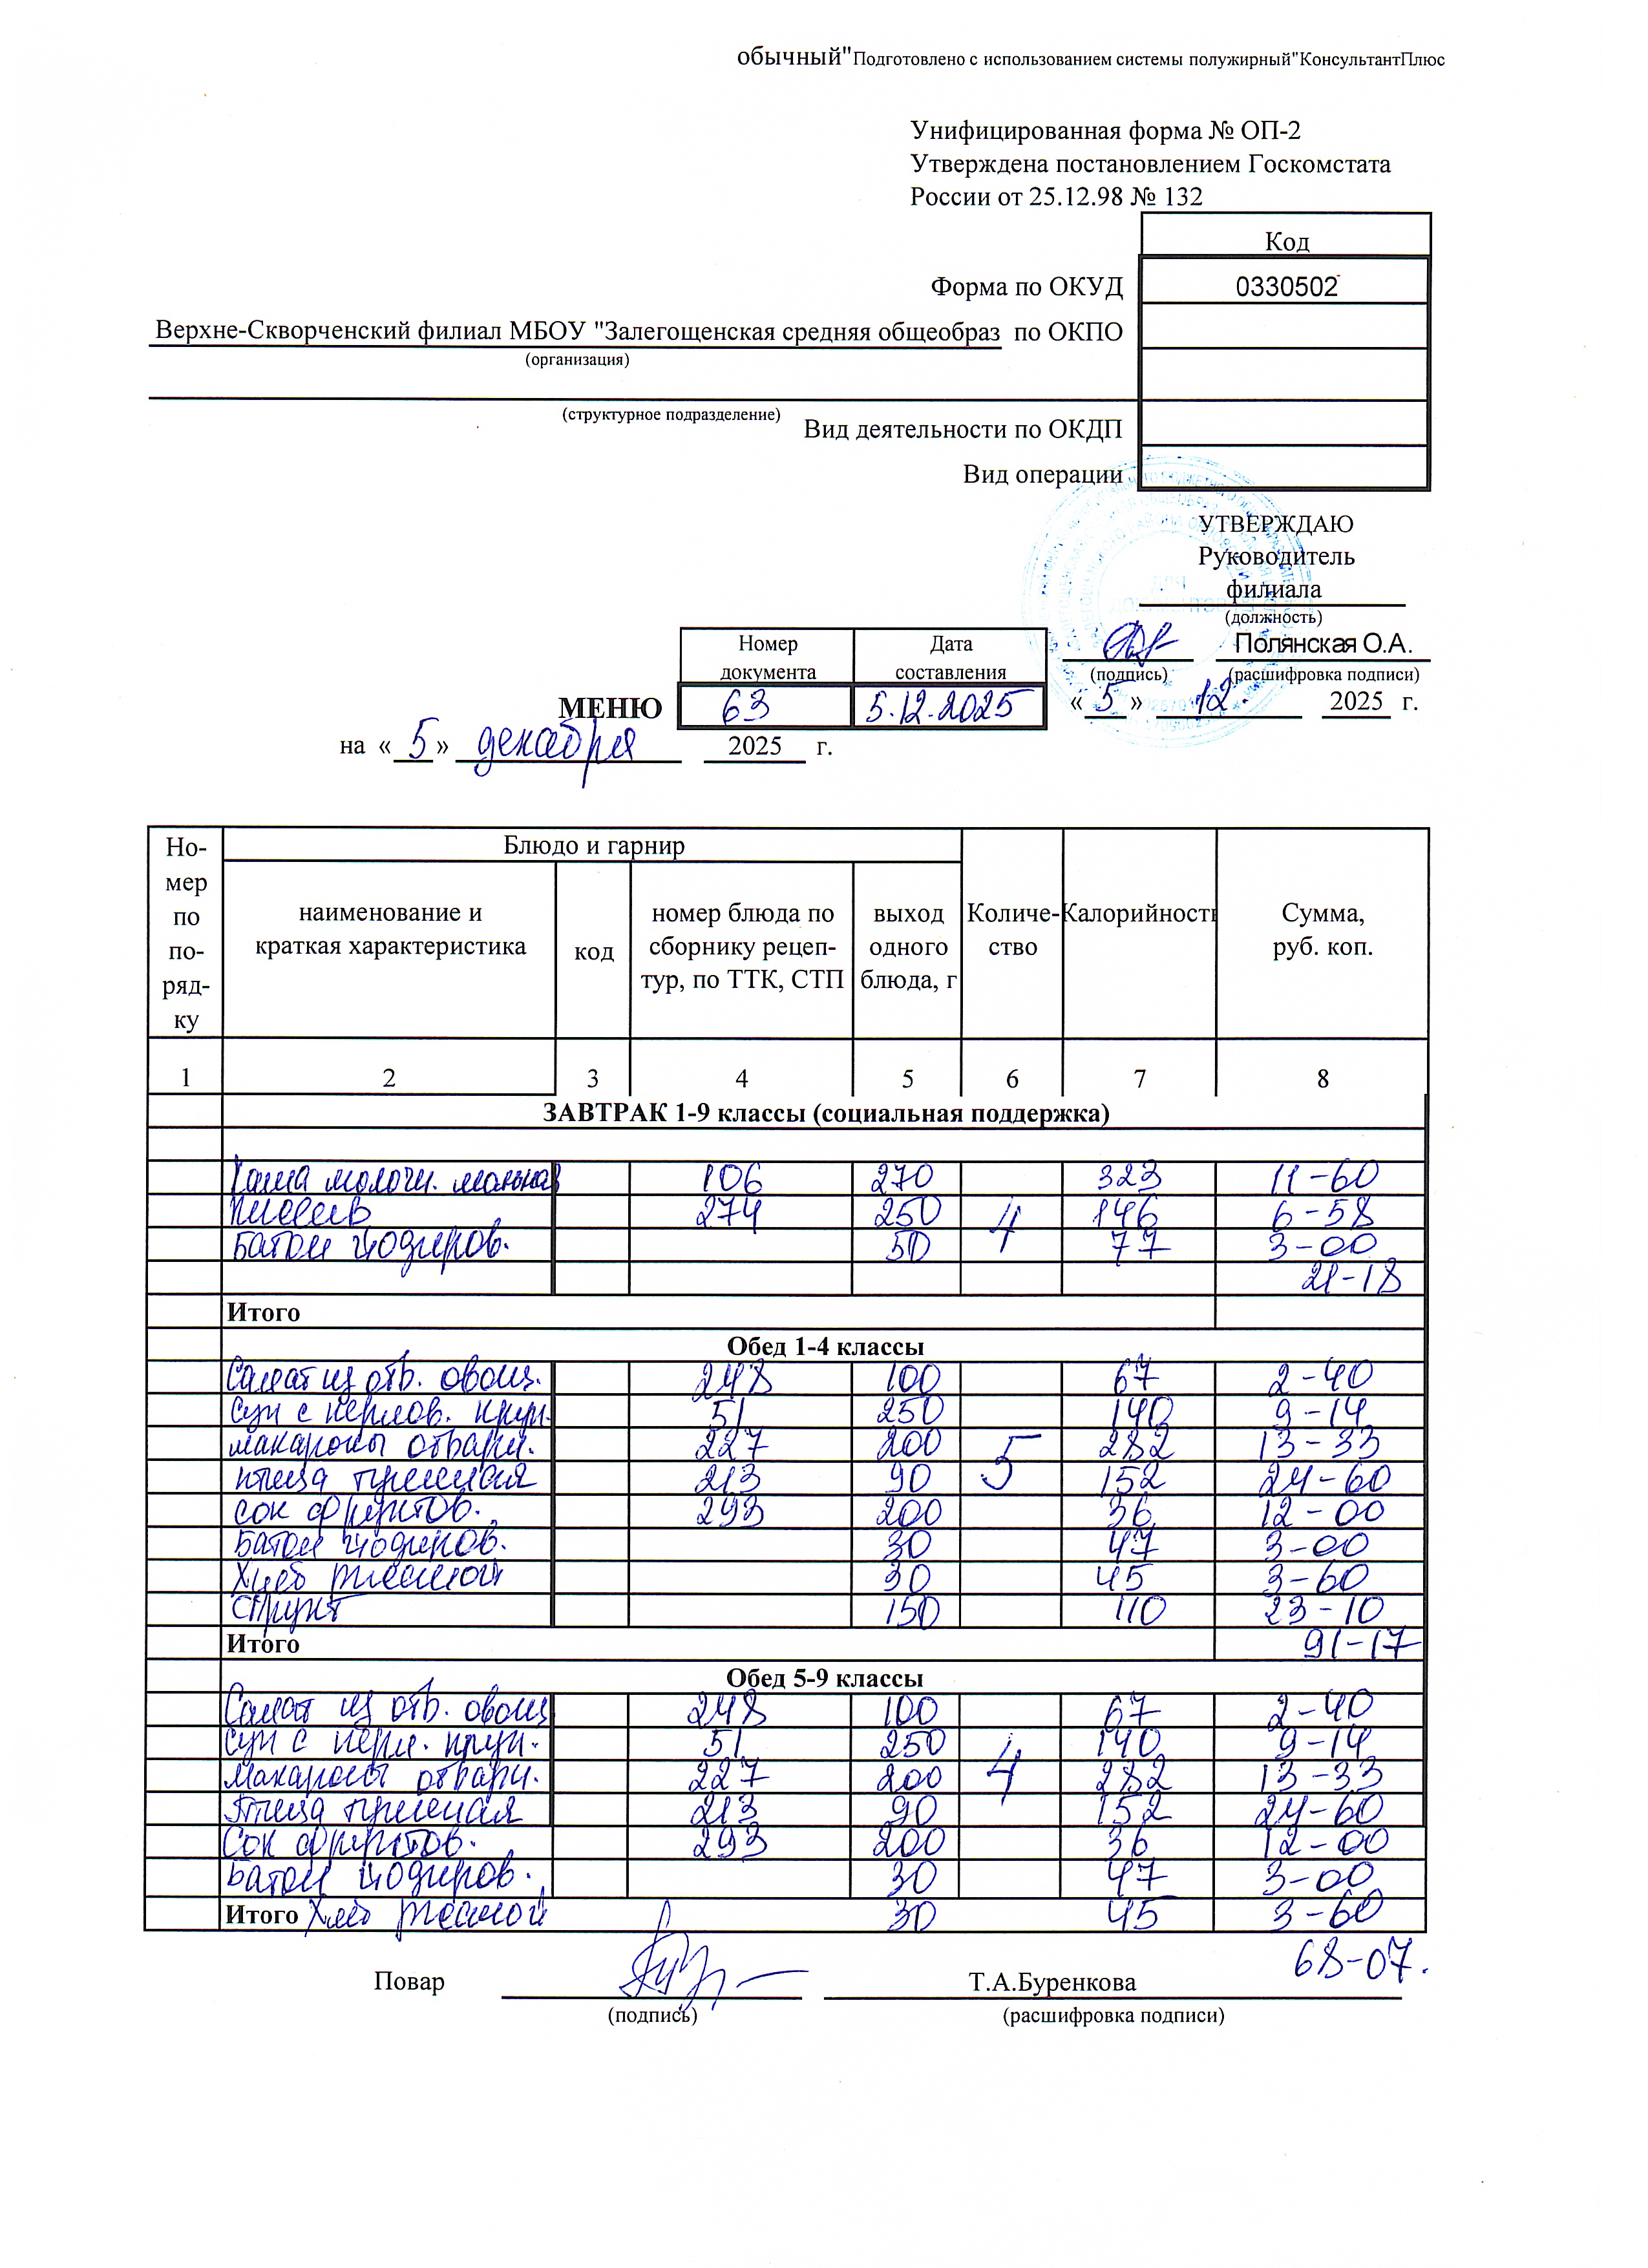 обычный"Подготовлено с использованием системы полужирный"КонсультантПлюс
Унифицированная форма № ОП-2
Утверждена постановлением Госкомстата
России от 25.12.98 № 132
Код
Форма по ОКУД 0330502
Верхне-Скворченский филиал МБОУ "Залегощенская средняя общеобраз по ОКПО
(организация)
(структурное подразделение)
Вид деятельности по ОКДП
Вид операции
УТВЕРЖДАЮ
Руководитель
филиала
(должность)
Полянская О.А.
(подпись) (расшифровка подписи)
Номер документа Дата составления
МЕНЮ 63 5.12.2025 « 5 » 12. 2025 г.
на « 5 » декабря 2025 г.
Но-мер по по-ряд-ку Блюдо и гарнир Количе-ство Калорийность Сумма, руб. коп.
наименование и краткая характеристика код номер блюда по сборнику рецеп-тур, по ТТК, СТП выход одного блюда, г
1 2 3 4 5 6 7 8
ЗАВТРАК 1-9 классы (социальная поддержка)
Каша молочн. манная 106 270 323 11-60
274 250 4 146 6-58
Батон йодиров. 50 77 3-00
21-18
Итого
Обед 1-4 классы
Салат из отв. овощ. 248 100 67 2-40
Суп с перлов. круп. 51 250 140 9-14
макароны отварн. 227 200 5 282 13-33
птица 213 90 152 24-60
сок фруктов. 293 200 36 12-00
Батон йодиров. 30 47 3-00
Хлеб ржаной 30 45 3-60
Фрукт 150 110 23-10
Итого 91-17
Обед 5-9 классы
Салат из отв. овощ 248 100 67 2-40
суп с перл. круп. 51 250 140 9-14
Макароны отварн. 227 200 4 282 13-33
Птица 213 90 152 24-60
Сок фруктов. 293 200 36 12-00
Батон йодиров. 30 47 3-00
Итого Хлеб ржаной 30 45 3-60
68-07.
Повар Т.А.Буренкова
(подпись) (расшифровка подписи)